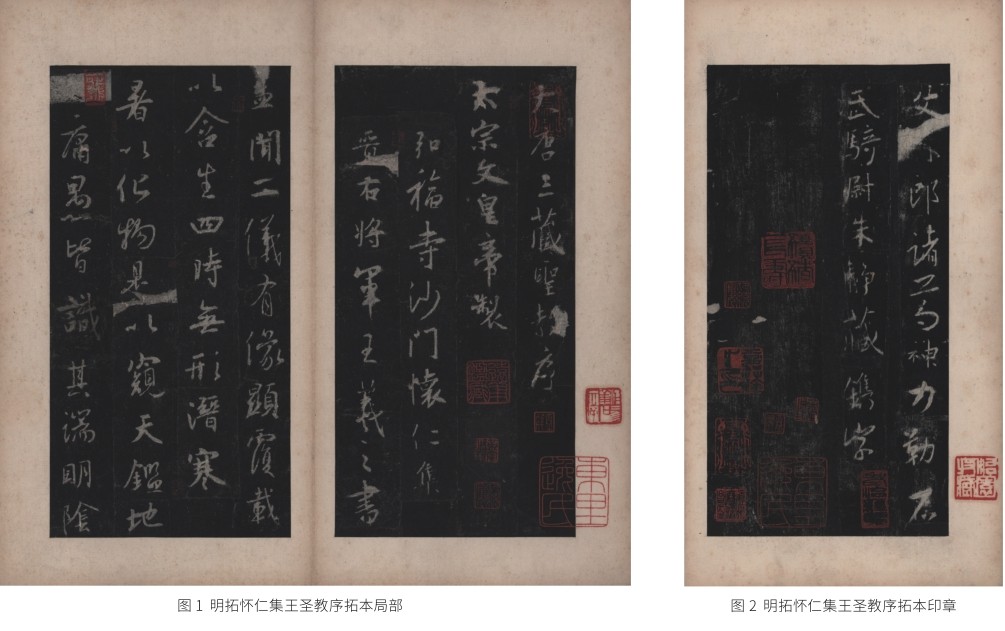 大唐三藏聖教序
太宗文皇帝製
弘福寺沙门懷仁集
晉右將軍王羲之書
盖聞二儀有像顯覆載
以含生四時無形潛寒
暑以化物是以窺天鑑地
庸愚皆識其端明陰
图 1 明拓怀仁集王圣教序拓本局部
文林郎諸葛神力勒石
武騎尉朱静藏鐫字
图 2 明拓怀仁集王圣教序拓本印章